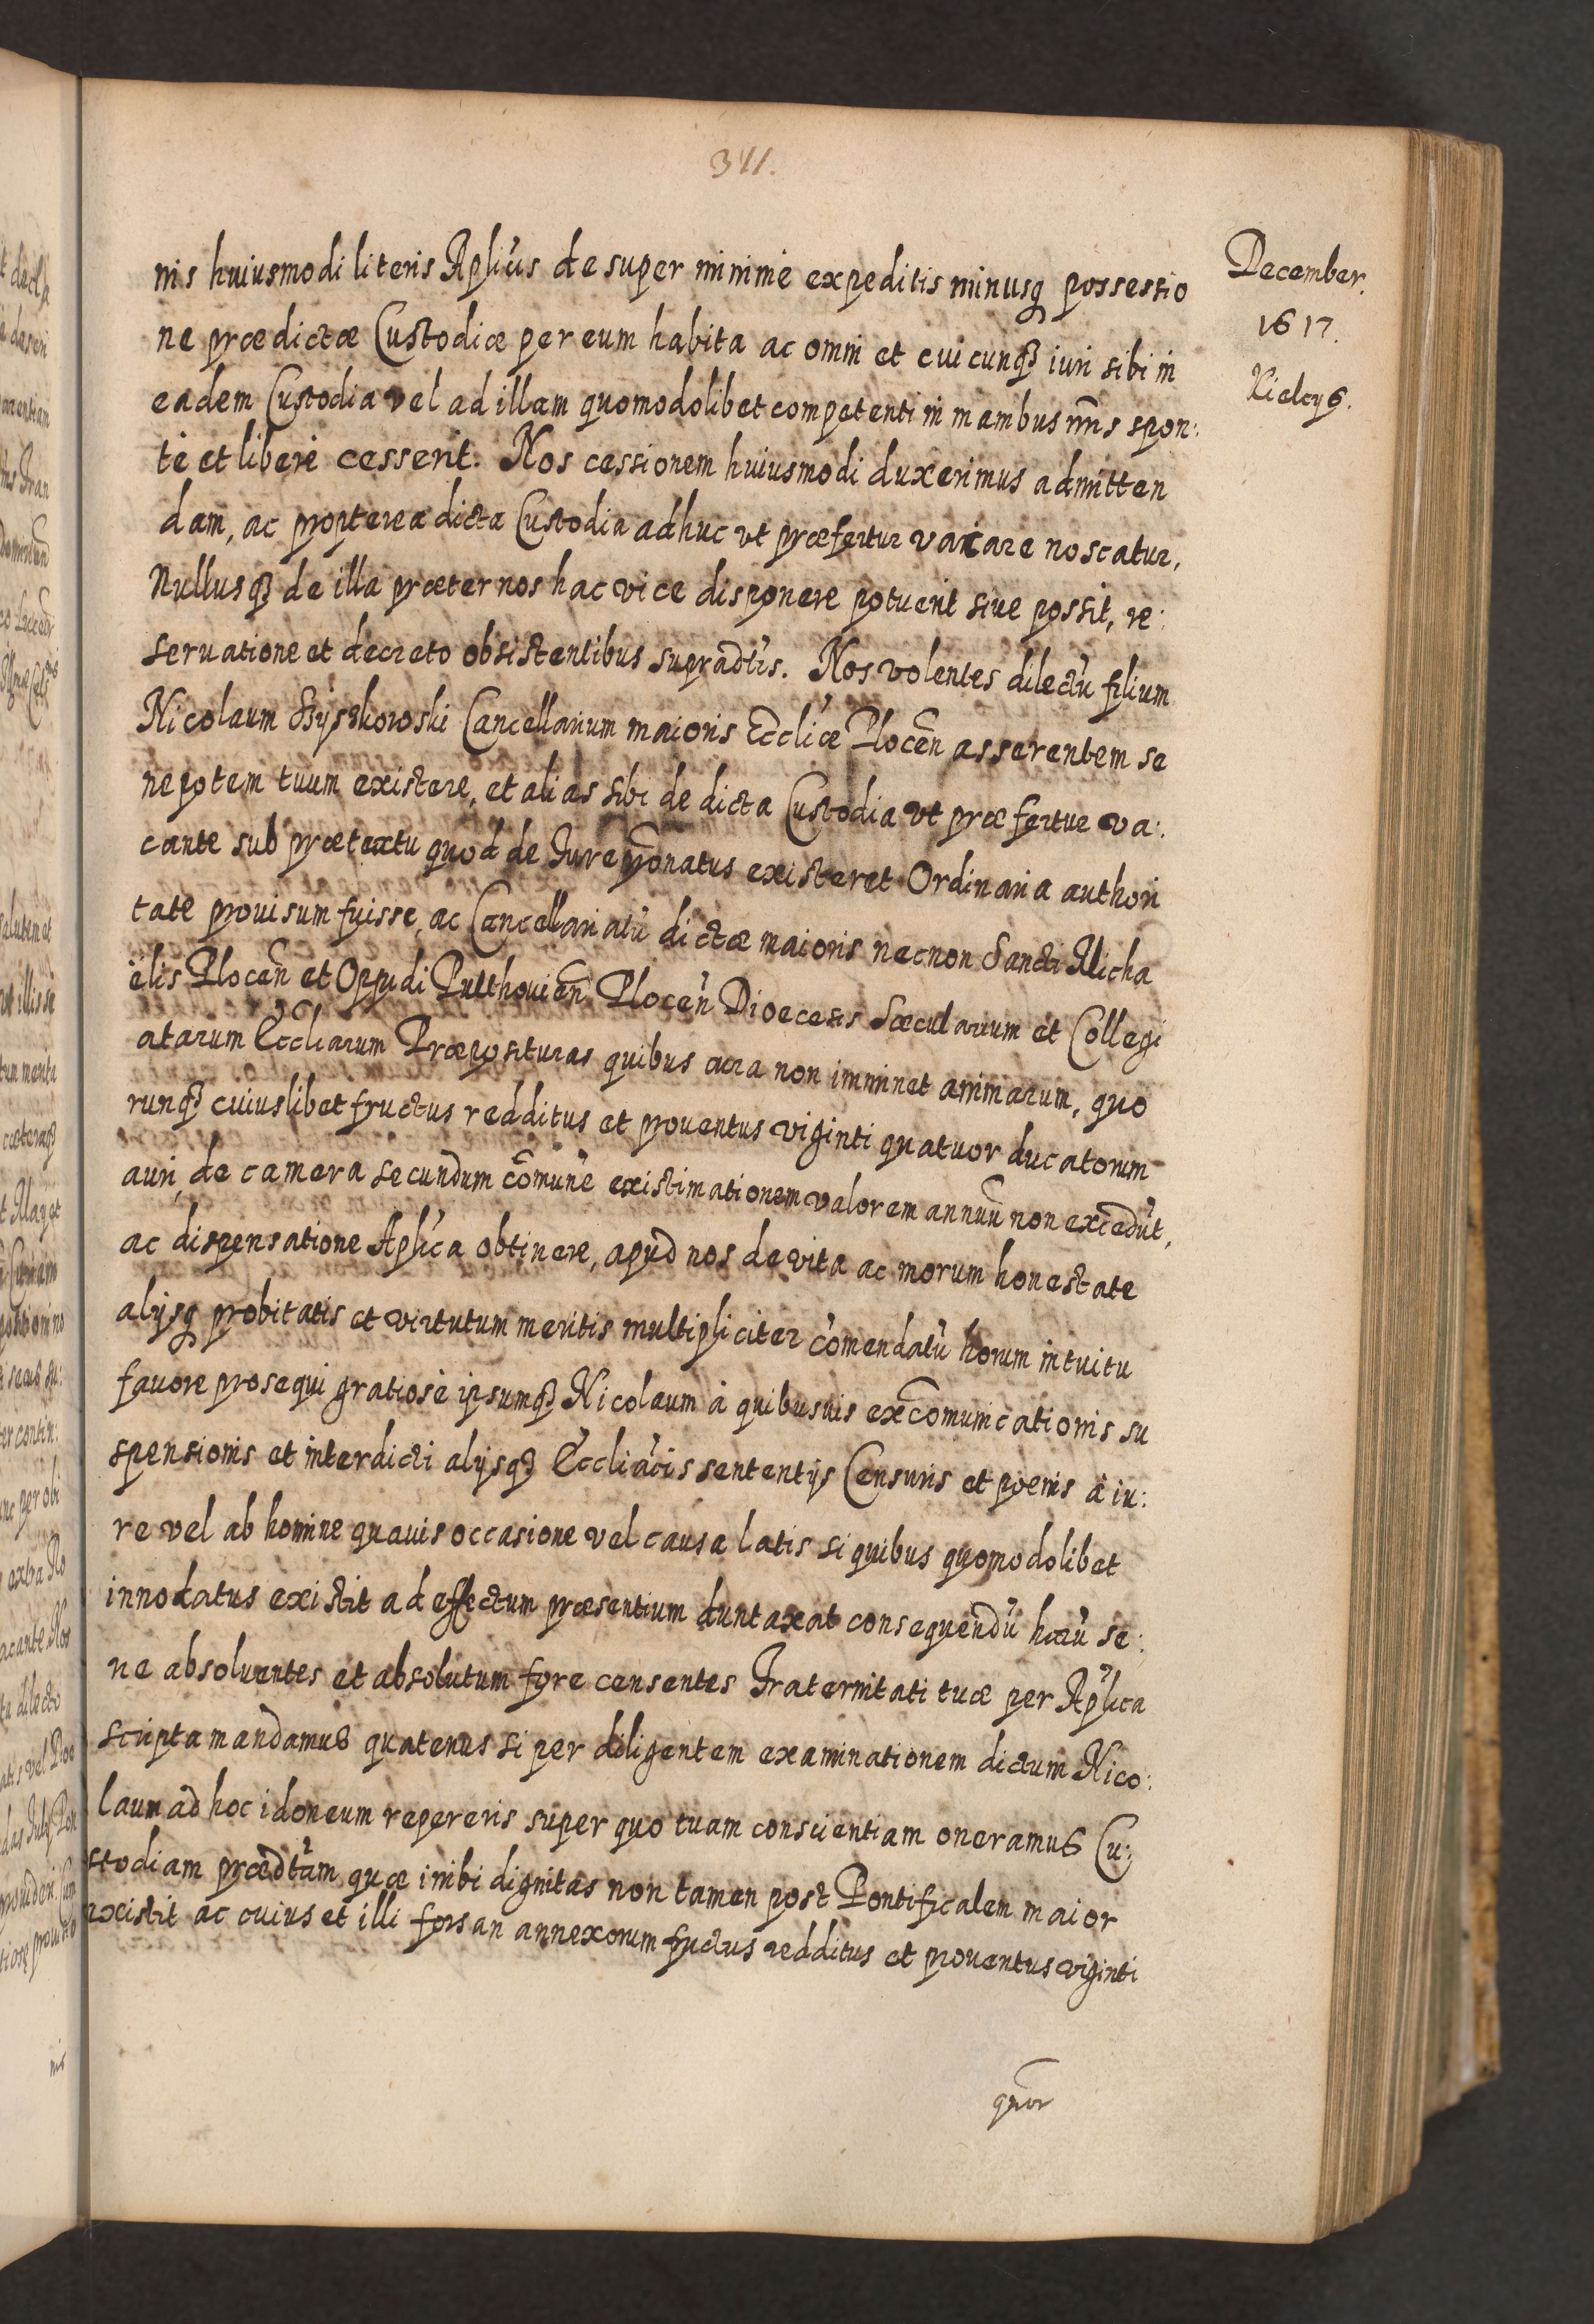 341.
December.
1617.
Kielcys.
nis huiusmodi literis Aplicis desuper minime expeditis minusq possessio
ne prædictæ Custodiæ per eum habita ac omni et cuicunq iuri sibi in
eadem Custodia vel ad illam quomodolibet competenti in manibus nris spon:
te et libere cesserit. Nos cessionem huiusmodi duxerimus admitten
dam, ac propterea dicta Custodia adhuc vt præfertur vacare noscatur,
Nullusq de illa præter nos hac vice disponere potuerit siue possit, re:
seruatione et decreto obsistentibus supradtis. Nos volentes dilectū filium
Nicolaum Szyszkowski Cancellarium maioris Eccliæ Plocen asserentem se
nepotem tuum existere, et alias sibi de dicta Custodia vt præfertur va:
cante sub prætextu quod de Iure pronatus existeret Ordinaria authori
tate prouisum fuisse, ac Cancellariatū dictæ maioris necnon Sancti Micha
ëlis Plocen et Oppidi Pulthouien Plocen Dioecesis Sæcularium et Collegi
atarum Eccliarum Præposituras quibus cura non imminet animarum, quo
runq cuiuslibet fructus redditus et prouentus viginti quatuor ducatorum
auri de camera secundum cōmunē existimationem valorem annuū non excedūt,
ac dispensatione Aplica obtinere, apud nos de vita ac morum honestate
alijsq probitatis et virtutum meritis multipliciter cōmendatū horum intuitu
fauore prosequi gratiose ipsumq Nicolaum à quibusuis excōmunicationis su
spensionis et interdicti alijsq Eccliacis sententijs Censuris et poenis à iu:
re vel ab homine quauis occasione vel causa latis si quibus quomodolibet
innodatus existit ad effectum præsentium duntaxat consequendū harū se:
rie absoluentes et absolutum fore censentes Fraternitati tuæ per Aplica
scripta mandamus quatenus si per diligentem examinationem dictum Nico:
laum ad hoc idoneum repereris super quo tuam conscientiam oneramus Cu:
stodiam prædtam quæ inibi dignitas non tamen post Pontificalem maior
existit ac cuius et illi forsan annexorum fructus redditus et prouentus viginti
quor